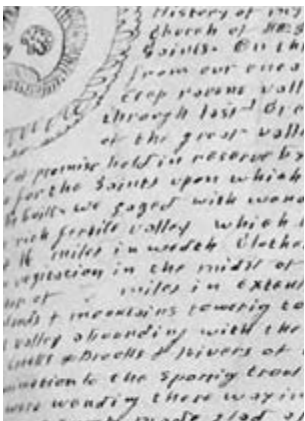 History of my
Church of
Saints. On th
from our enca
deep ravine vall
through last
of the great vall
of promise held in reserve by
for the Saints upon which
built. we gazed with wond
rich fertile valley which
16 miles in wedth Clothed
vegitation in the midst of
of miles in Extent
Islands & mountains towerig to
valley abounding with the
& Brooks & Rivers of
to the Sporrig trout
were wending there way in
made glad at